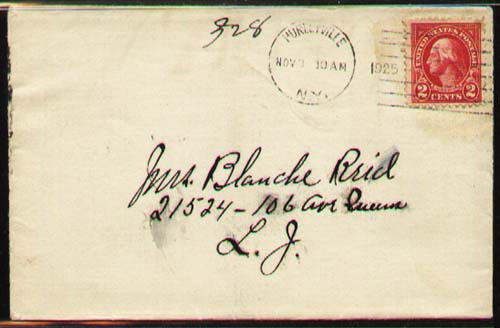 328
HURLEYVILLE
NOV 9 10 AM 1925
N.Y.
UNITED STATES POSTAGE
2 CENTS 2
Mrs. Blanche Reid
21524-106 Ave Queens
L. I.